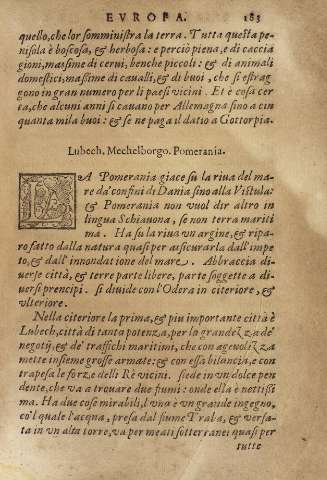 EVROPA. 185
quello, che lor somministra la terra. Tutta questa pe-
nisola è boscosa, & herbosa: e perciò piena, e di caccia
gioni, massime di cerui, benche piccoli: & di animali
domestici, massime di caualli, & di buoi, che si estrag
gono in gran numero per li paesi vicini. Et è cosa cer
ta, che alcuni anni si cauano per Allemagna sino a cin
quanta mila buoi: & se ne paga il datio a Gottorpia.
Lubech, Mechelborgo. Pomerania.
LA Pomerania giace su la riua del ma
re da' confini di Dania sino alla Vistula:
& Pomerania non vuol dir altro in
lingua Schiauona, se non terra mariti
ma. Ha su la riua vn argine, & ripa-
ro fatto dalla natura quasi per assicurarla dall'impe
to, & dall'innondatione del mare. Abbraccia di-
uerse città, & terre parte libere, parte soggette a di
uersi prencipi. si diuide con l'Odera in citeriore, &
vlteriore.
Nella citeriore la prima, & piu importante città è
Lubech, città di tanta potenza, per la grandezza de'
negotij, & de' traffichi maritimi, che con ageuolezza
mette insieme grosse armate: & con essa bilancia, e con
trapesa le forze delli Rè vicini. siede in vn dolce pen
dente, che va a trouare due fiumi: onde ella è nettissi
ma. Ha due cose mirabili, l'vna è vn grande ingegno,
co'l quale l'acqua, presa dal fiume Traba, & versa-
ta in vn alta torre, va per meati sotterranei quasi per
tutte